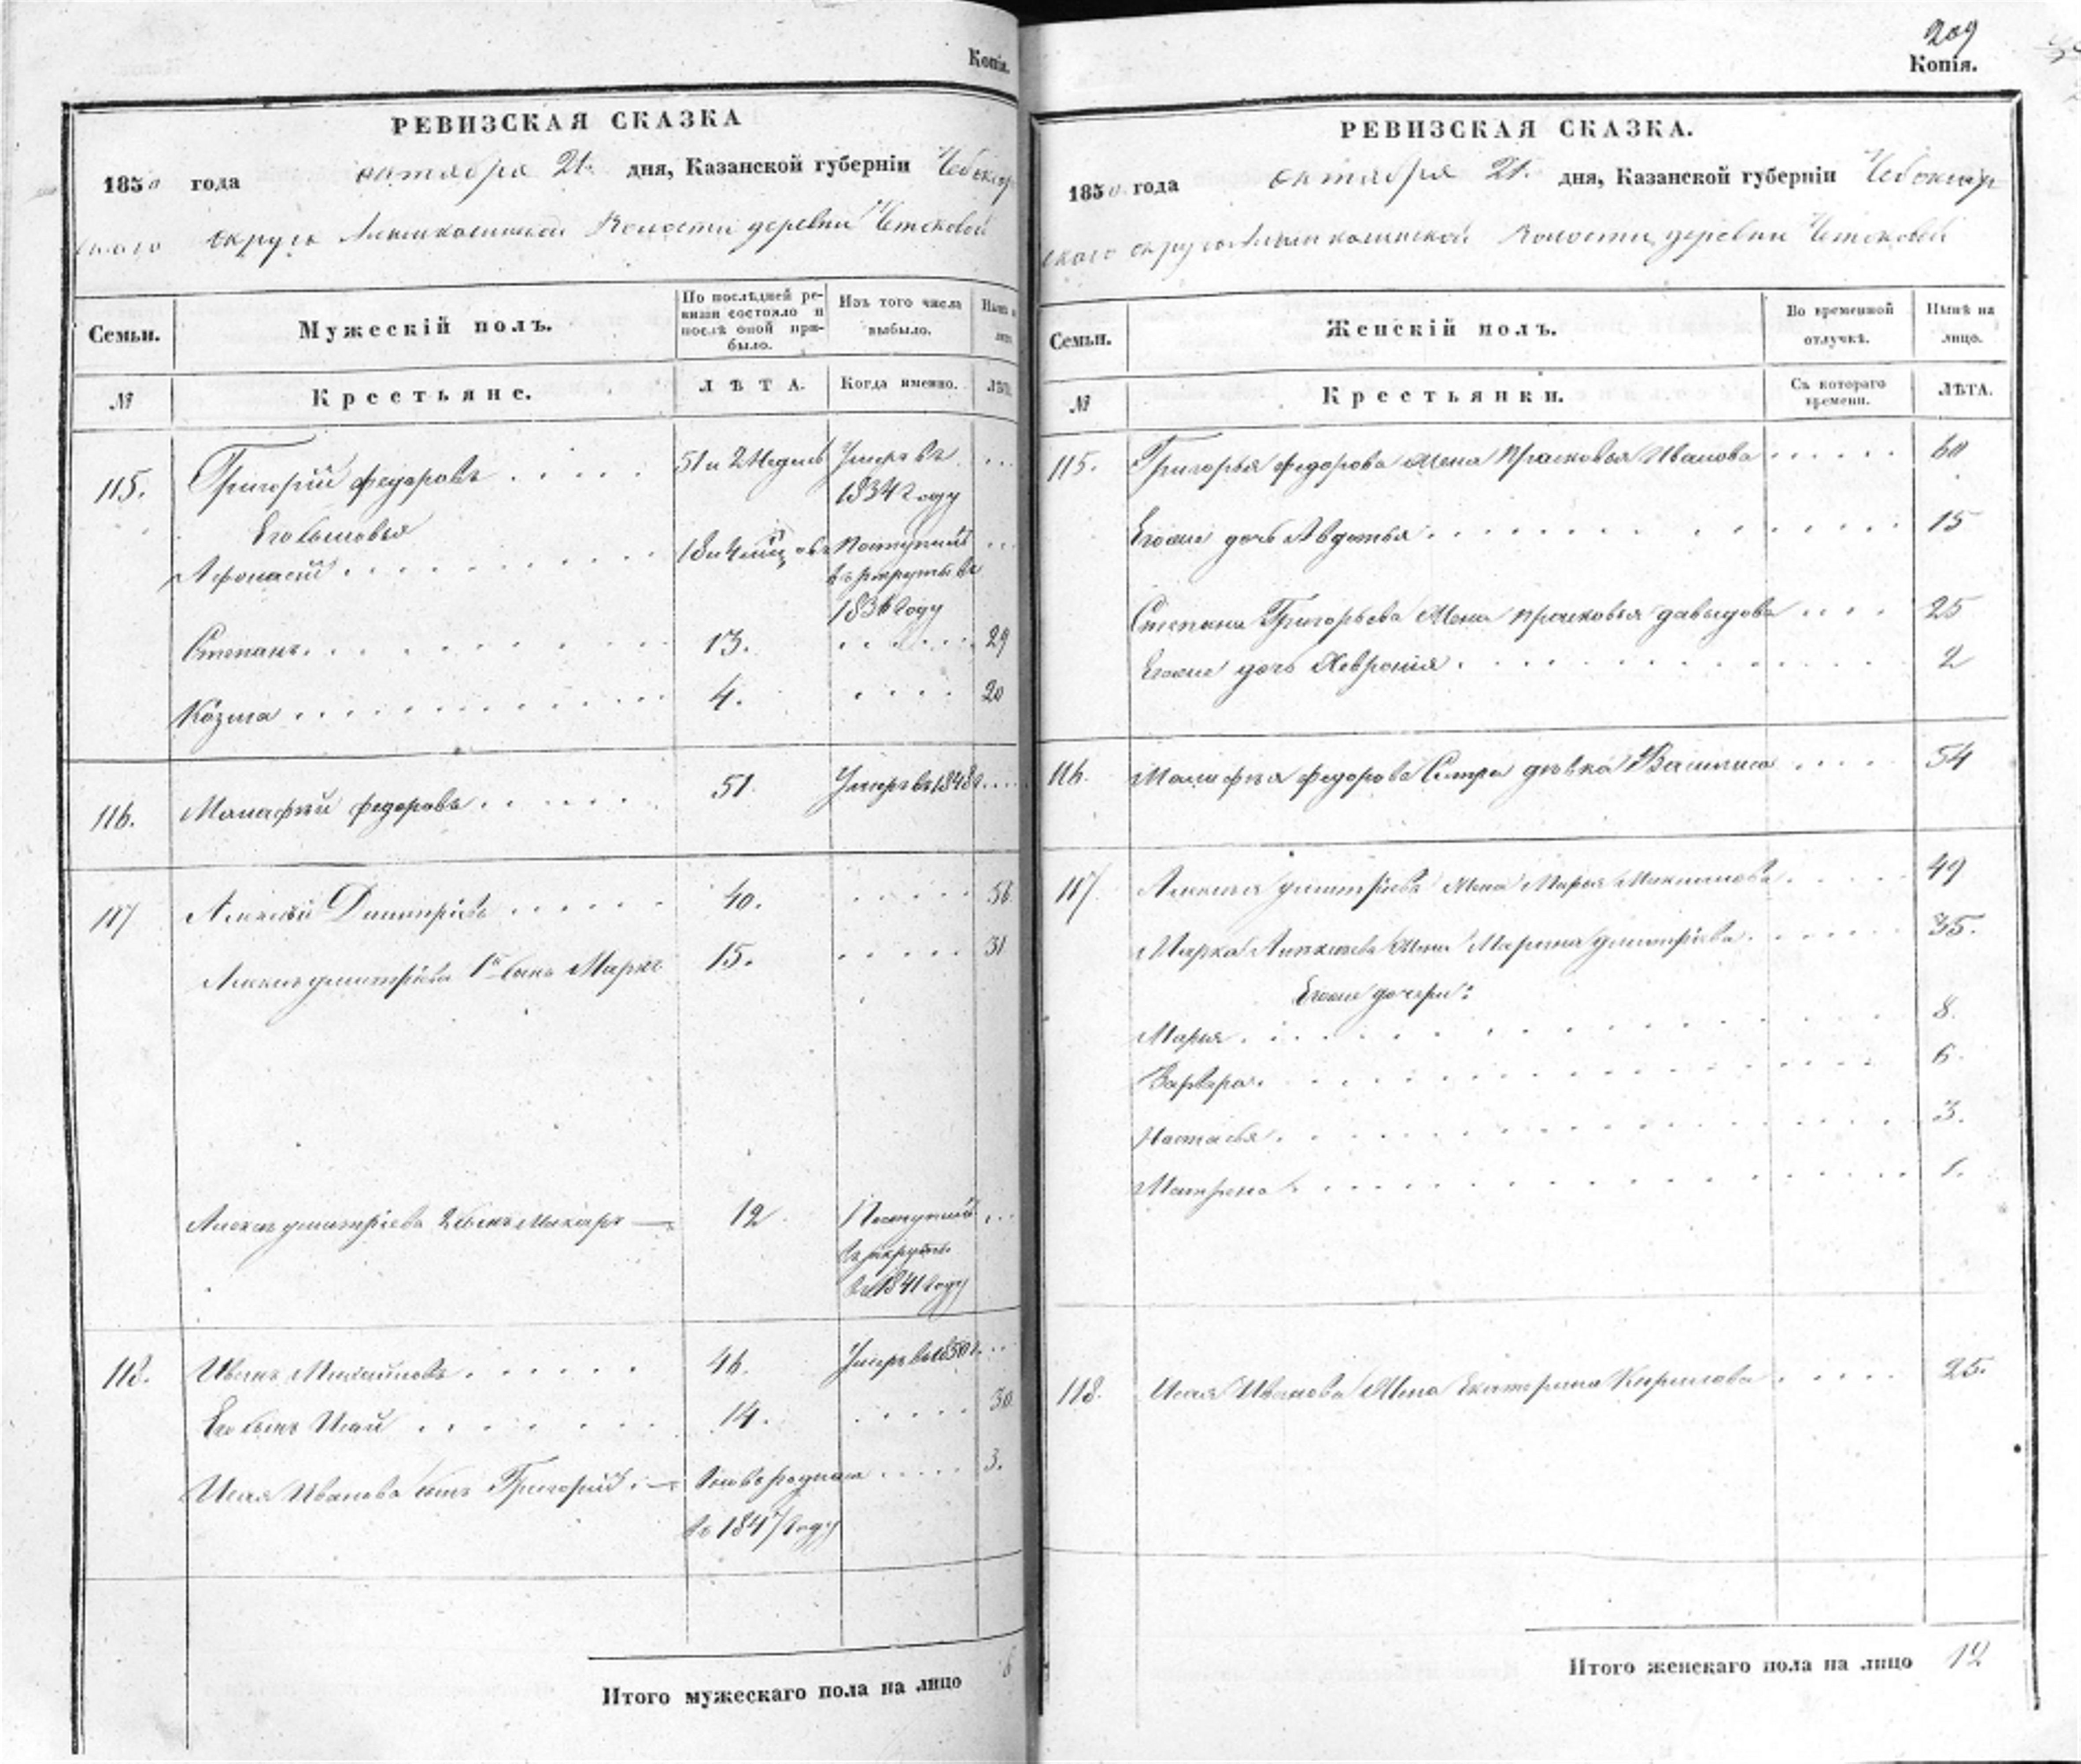 Копія.
РЕВИЗСКАЯ СКАЗКА
1850 года октября 21. дня, Казанской губерніи Чебоксар
скаго округа волости деревни
Семьи.
Мужескій полъ.
По послѣдней ре-
визіи состояло и
послѣ оной при-
было.
Изъ того числа
выбыло.
№
Крестьяне.
ЛѢТА.
Когда именно.
115.
Григорій Федоровъ
51 и 2 недель
Умеръ въ
1834 году
Его сыновья
Афонасій
18 и 4
Поступилъ
въ рекруты въ
Степанъ
13.
29
Козма
4.
20
116.
Малафѣй Федоровъ
51
Умеръ въ 1848 г.
117
Алексѣй Димитріевъ
40.
56
Алексѣя Димитріева 1й сынъ Марко
15.
31
Алексѣя Димитріева 2 сынъ Макаръ
12
Поступилъ
въ рекруты
въ 1841 году
118.
Иванъ Михайловъ
46.
Умеръ въ 1850 г.
Его сынъ Исай
14.
30.
Исая Иванова сынъ Григорій
вновь рожденъ
3.
въ 1847 году
Итого мужескаго пола на лицо
6
209
Копія.
РЕВИЗСКАЯ СКАЗКА.
1850. года октября 21. дня, Казанской губерніи Чебоксар
скаго округа волости деревни
Семьи.
Женскій полъ.
Во временной
отлучкѣ.
Нынѣ на
лицо.
№
Крестьянки.
Съ котораго
времени.
ЛѢТА.
115.
Григорья Федорова жена Прасковья Иванова
60
Егоже дочь Авдотья
15
Степана Григорьева жена Прасковья Давыдова
25
Егоже дочь Хевронія
2
116.
Малафѣя Федорова сестра дѣвка Василиса
54
117.
Алексѣя Димитріева жена Марья Максимова
49
Марка Алексѣева жена Марина Димитріева
35.
Егоже дочери:
Марья
8.
Варвара
6.
Настасья
3.
Матрена
1.
118.
Исая Иванова жена Екатерина Кирилова
25.
Итого женскаго пола на лицо
12